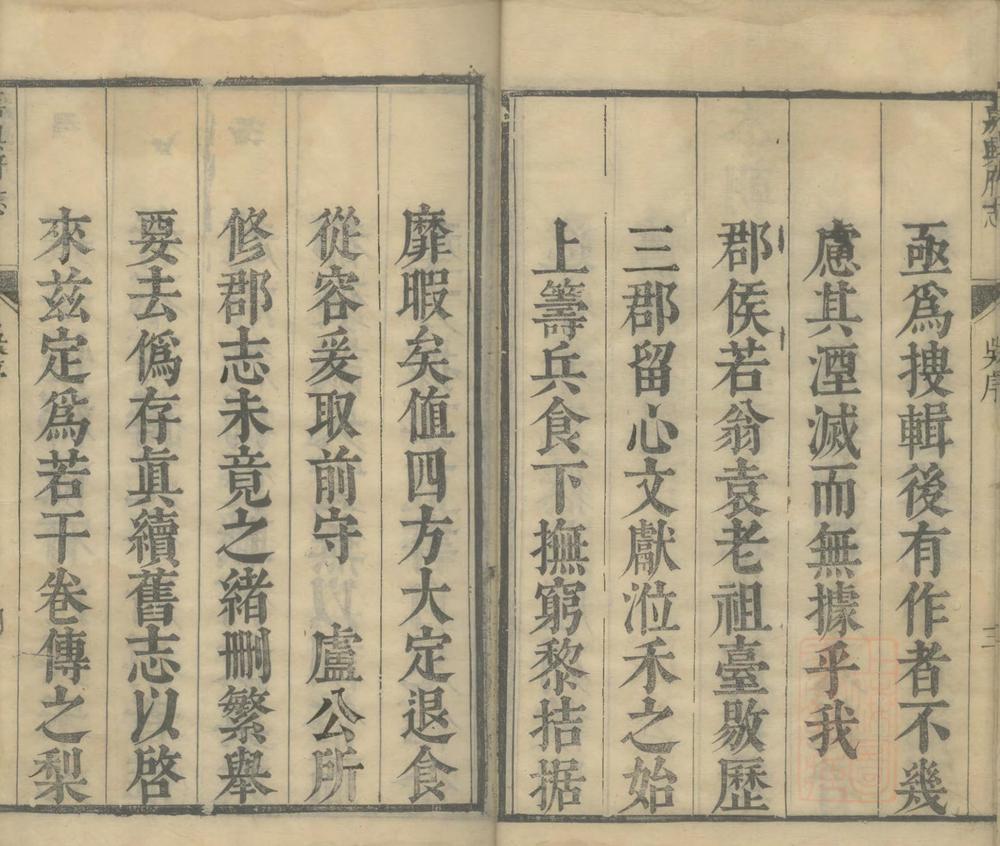 嘉興府志
吳序
三
亟爲搜輯後有作者不幾
慮其湮滅而無據乎我
郡侯若翁袁老祖臺敭歷
三郡留心文獻涖禾之始
上籌兵食下撫窮黎拮据
靡暇矣值四方大定退食
從容爰取前守 盧公所
修郡志未竟之緒刪繁舉
要去僞存眞續舊志以啓
來茲定爲若干卷傳之梨